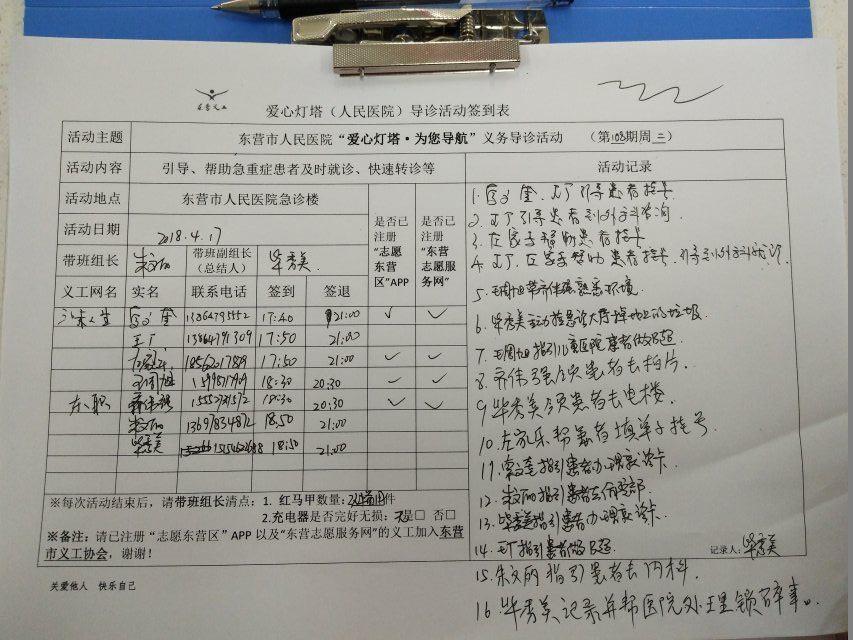 东营义工
爱心灯塔（人民医院）导诊活动签到表
活动主题 东营市人民医院“爱心灯塔·为您导航”义务导诊活动 （第108期周三）
活动内容 引导、帮助急重症患者及时就诊、快速转诊等 活动记录
活动地点 东营市人民医院急诊楼 是否已注册“志愿东营区”APP 是否已注册“东营志愿服务网”
活动日期 2018.4.17
带班组长 朱文丽 带班副组长（总结人） 毕秀美
义工网名 实名 联系电话 签到 签退
17:40 21:00 ✓ ✓
王广 17:50 21:00
17:50 21:00 ✓ ✓
王周旭 18:30 20:30 ✓ ✓
18:30 20:30 ✓ ✓
朱文丽 18:50 21:00
毕秀美 18:50 21:00
※每次活动结束后，请带班组长清点：1. 红马甲数量： 件
2.充电器是否完好无损：是□ 否□
※备注：请已注册“志愿东营区”APP 以及“东营志愿服务网”的义工加入东营市义工协会，谢谢！
关爱他人 快乐自己
1. 王广引导患者挂号
2. 王广引导患者到外科咨询
3. 左家乐帮助患者挂号
4. 王广、左家乐帮助患者挂号，引导到外科就诊
5. 王周旭带齐伟强熟悉环境.
6. 毕秀美主动捡急诊大厅掉地上的垃圾
7. 王周旭指引儿童医院患者做B超
8. 齐伟强领患者去拍片
9. 毕秀美领患者去电梯
10. 左家乐帮患者填单子挂号
11. 指引患者办理就诊卡
12. 朱文丽指引患者去住院部.
13. 毕秀美指引患者办理就诊卡.
14. 王广指引患者做B超.
记录人：毕秀美
15. 朱文丽指引患者去内科.
16. 毕秀美记录并帮医院处理锁碎事。